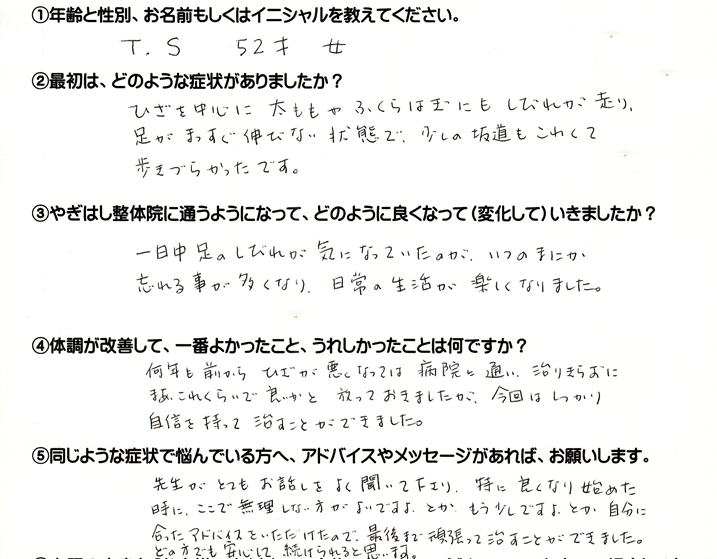 ①年齢と性別、お名前もしくはイニシャルを教えてください。
T.S 52才 女
②最初は、どのような症状がありましたか？
ひざを中心に 太ももや ふくらはぎにも しびれが 走り、
足が まっすぐ 伸びない 状態で、少しの坂道も こわくて
歩きづらかった です。
③やぎはし整体院に通うようになって、どのように良くなって（変化して）いきましたか？
一日中 足の しびれが 気になっていたのが、いつのまにか
忘れる 事が 多くなり、日常の 生活が 楽しくなりました。
④体調が改善して、一番よかったこと、うれしかったことは何ですか？
何年も 前から ひざが 悪くなっては 病院に 通い、治りきらずに
まあ、これくらいで 良いかと 放っておきましたが、今回は しっかり
自信を 持って 治すことができました。
⑤同じような症状で悩んでいる方へ、アドバイスやメッセージがあれば、お願いします。
先生が とても お話しを よく 聞いて 下さり、特に 良くなり 始めた
時に、ここで 無理しない方がよいですよ とか、もう少しですよ とか 自分に
合ったアドバイスをいただけたので、最後まで 頑張って 治すことが できました。
どの方でも 安心して、続けられると 思います。